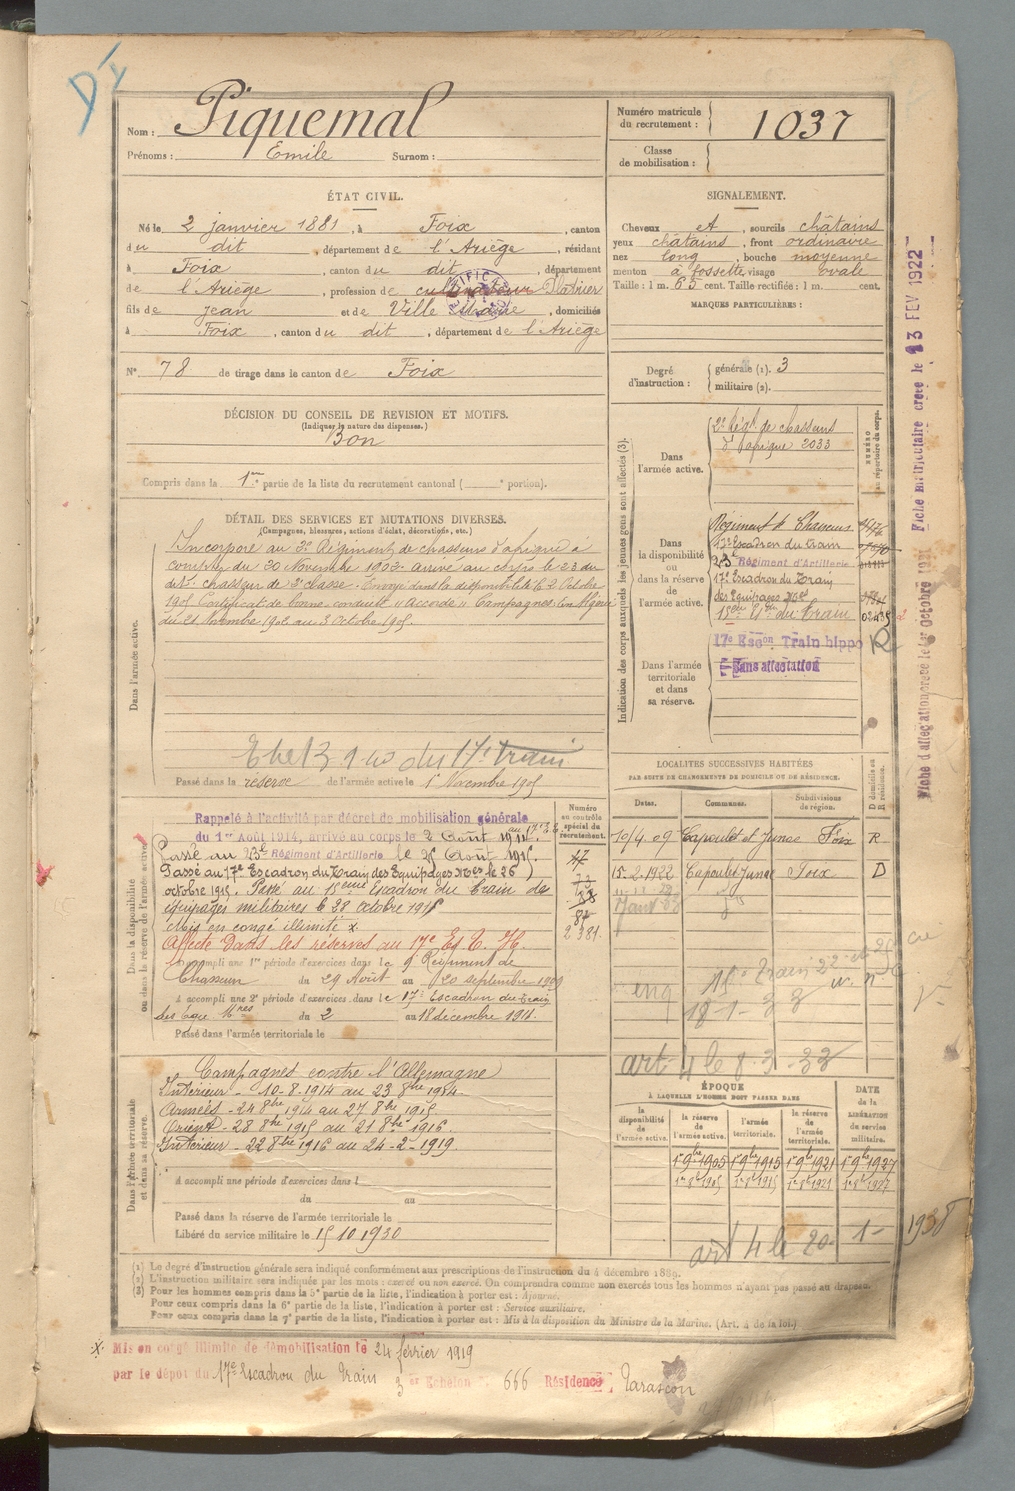 Nom : Piquemal
Prénoms : Emile Surnom :
Numéro matricule du recrutement : 1037
Classe de mobilisation :
ÉTAT CIVIL.
Né le 2 janvier 1881, à Foix, canton
du dit, département de l'Ariège, résidant
à Foix, canton du dit, département
de l'Ariège, profession de cultivateur Plâtrier
fils de Jean et de Ville, domiciliés
à Foix, canton du dit, département de l'Ariège
N° 78 de tirage dans le canton de Foix
SIGNALEMENT.
Cheveux et, sourcils châtains
yeux châtains, front ordinaire
nez long, bouche moyenne
menton à fossette, visage ovale
Taille : 1 m. 65 cent. Taille rectifiée : 1 m. cent.
MARQUES PARTICULIÈRES :
Degré d'instruction : générale (1). 3
militaire (2).
DÉCISION DU CONSEIL DE REVISION ET MOTIFS.
(Indiquer la nature des dispenses.)
Bon
Compris dans la 1re partie de la liste du recrutement cantonal ( e portion).
DÉTAIL DES SERVICES ET MUTATIONS DIVERSES.
(Campagnes, blessures, actions d'éclat, décorations, etc.)
Dans l'armée active.
Incorporé au 2e Régiment de chasseurs d'afrique à
compter du 20 Novembre 1902 arrivé au corps le 23 du
dit. chasseur de 2e classe. Envoyé dans la disponibilité le 2 Octobre
1905 Certificat de bonne conduite "Accordé" Campagnes: En Algérie
du 21 Novembre 1902 au 3 Octobre 1905.
du 17e train
Passé dans la réserve de l'armée active le 1er Novembre 1905
Indication des corps auxquels les jeunes gens sont affectés (3).
NUMÉRO au répertoire du corps.
Dans l'armée active.
2e Régt de chasseurs
d'afrique 2033
Dans la disponibilité ou dans la réserve de l'armée active.
Régiment de Chasseurs
Escadron du train
23e Régiment d'Artillerie
17e Escadron du Train
des Equipages Mres
15eme Eson du Train
17e Escon Train hippo
Sans affectation
Dans l'armée territoriale et dans sa réserve.
Dans la disponibilité ou dans la réserve de l'armée active.
Rappelé à l'activité par décret de mobilisation générale
du 1er Août 1914, arrivé au corps le 2 Août 1914.
Passé au 23e Régiment d'Artillerie le 25 Août 1915.
Passé au 17e Escadron du Train des Equipages Mres le 26
octobre 1915. Passé au 15eme Escadron du train des
équipages militaires le 28 octobre 1915
Mis en congé illimité x.
Affecté dans les réserves au 17e Es. T. H.
A accompli une 1re période d'exercices dans le 9e Régiment de
Chasseurs du 29 Août au 20 septembre 1909
A accompli une 2e période d'exercices dans le 17e Escadron du train
des Equ. Mres du 2 au 18 decembre 1911.
Passé dans l'armée territoriale le
Numéro au contrôle spécial du recrutement.
2381.
LOCALITES SUCCESSIVES HABITÉES
PAR SUITE DE CHANGEMENTS DE DOMICILE OU DE RÉSIDENCE.
Dates. Communes. Subdivisions de région. D domicile ou R résidence.
10/4 09 Capoulet et Junac Foix R
15-2-1922 Capoulet Junac Foix D
18-1-33
art 4 le 8.3.33
Dans l'armée territoriale et dans sa réserve.
Campagnes contre l'Allemagne
Intérieur - 10-8-1914 au 23 8bre 1914.
Armées - 24 8bre 1914 au 27 8bre 1915
Orient - 28 8bre 1915 au 21 8bre 1916.
Intérieur - 22 8bre 1916 au 24-2-1919.
A accompli une période d'exercices dans l
du au
Passé dans la réserve de l'armée territoriale le
Libéré du service militaire le 15 10 1930
ÉPOQUE
À LAQUELLE L'HOMME DOIT PASSER DANS
la disponibilité de l'armée active. la réserve de l'armée active. l'armée territoriale. la réserve de l'armée territoriale.
DATE de la LIBÉRATION du service militaire.
1er 9bre 1905 1er 9bre 1915 1er 9bre 1921 1er 9bre 1927
1er 8bre 1905 1er 8bre 1915 1er 8bre 1921 1er 8bre 1927
art 4 le 20-1-1938
(1) Le degré d'instruction générale sera indiqué conformément aux prescriptions de l'instruction du 4 décembre 1889.
(2) L'instruction militaire sera indiquée par les mots : exercé ou non exercé. On comprendra comme non exercés tous les hommes n'ayant pas passé au drapeau.
(3) Pour les hommes compris dans la 5e partie de la liste, l'indication à porter est : Ajourné.
Pour ceux compris dans la 6e partie de la liste, l'indication à porter est : Service auxiliaire.
Pour ceux compris dans la 7e partie de la liste, l'indication à porter est : Mis à la disposition du Ministre de la Marine. (Art. 4 de la loi.)
x Mis en congé illimité de démobilisation le 24 février 1919
par le dépôt du 17e Escadron du Train 3 er Echelon n° 666 Résidence Tarascon
Fiche matriculaire créée le 13 FEV 1922